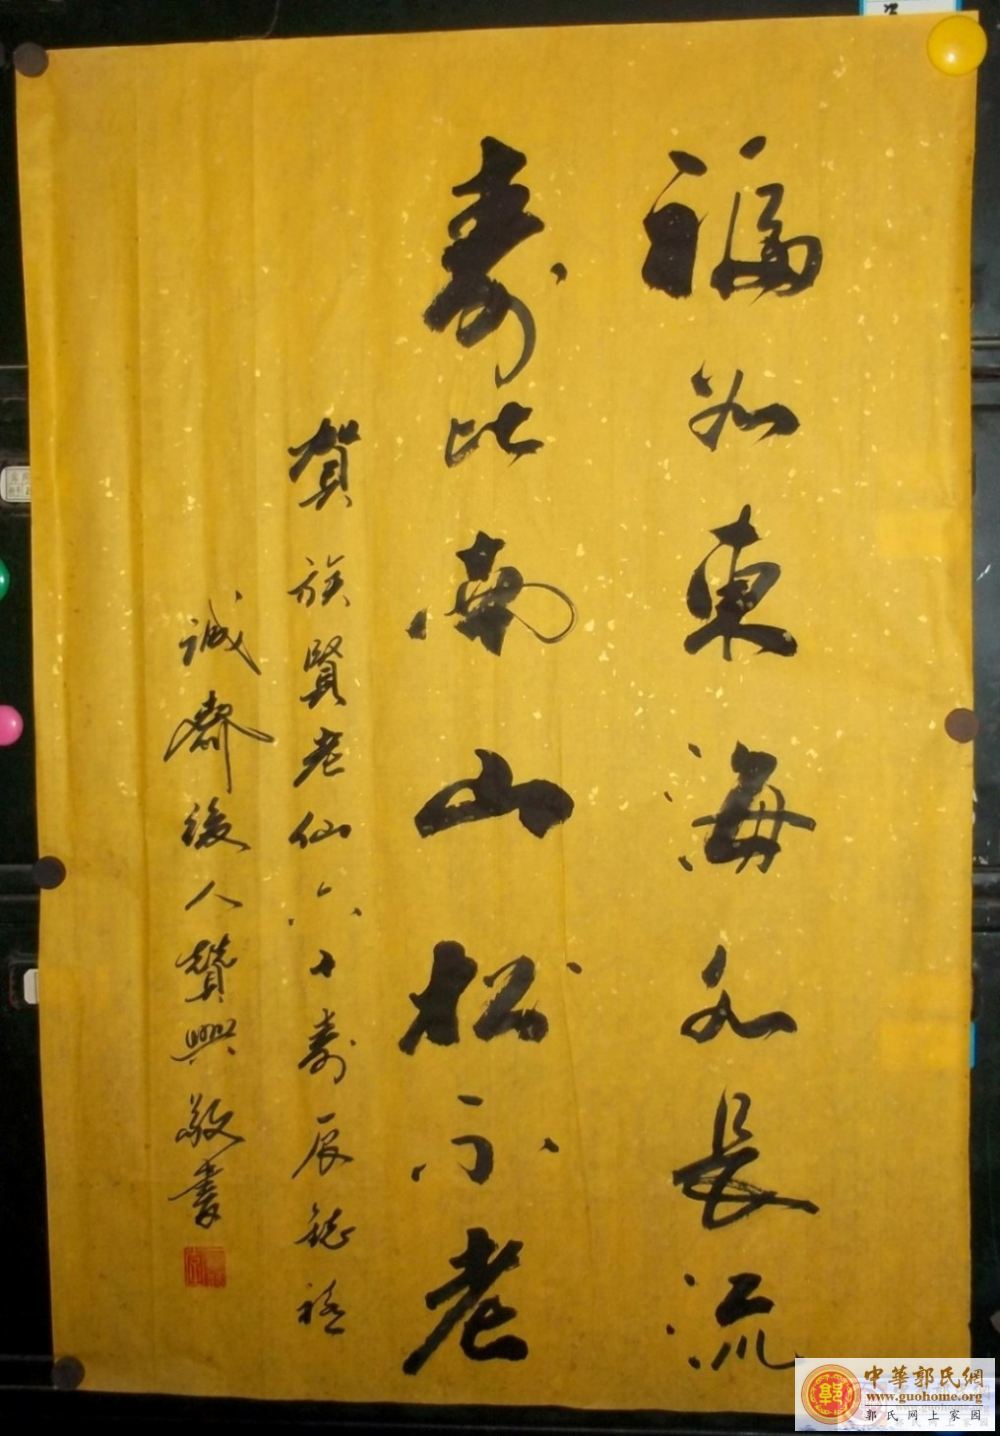 福如東海水長流
壽比南山松不老
賀族賢老仙六十壽辰誌禧
誠齋後人贊興敬書
中華郭氏網
www.guohome.org
郭氏网上家园